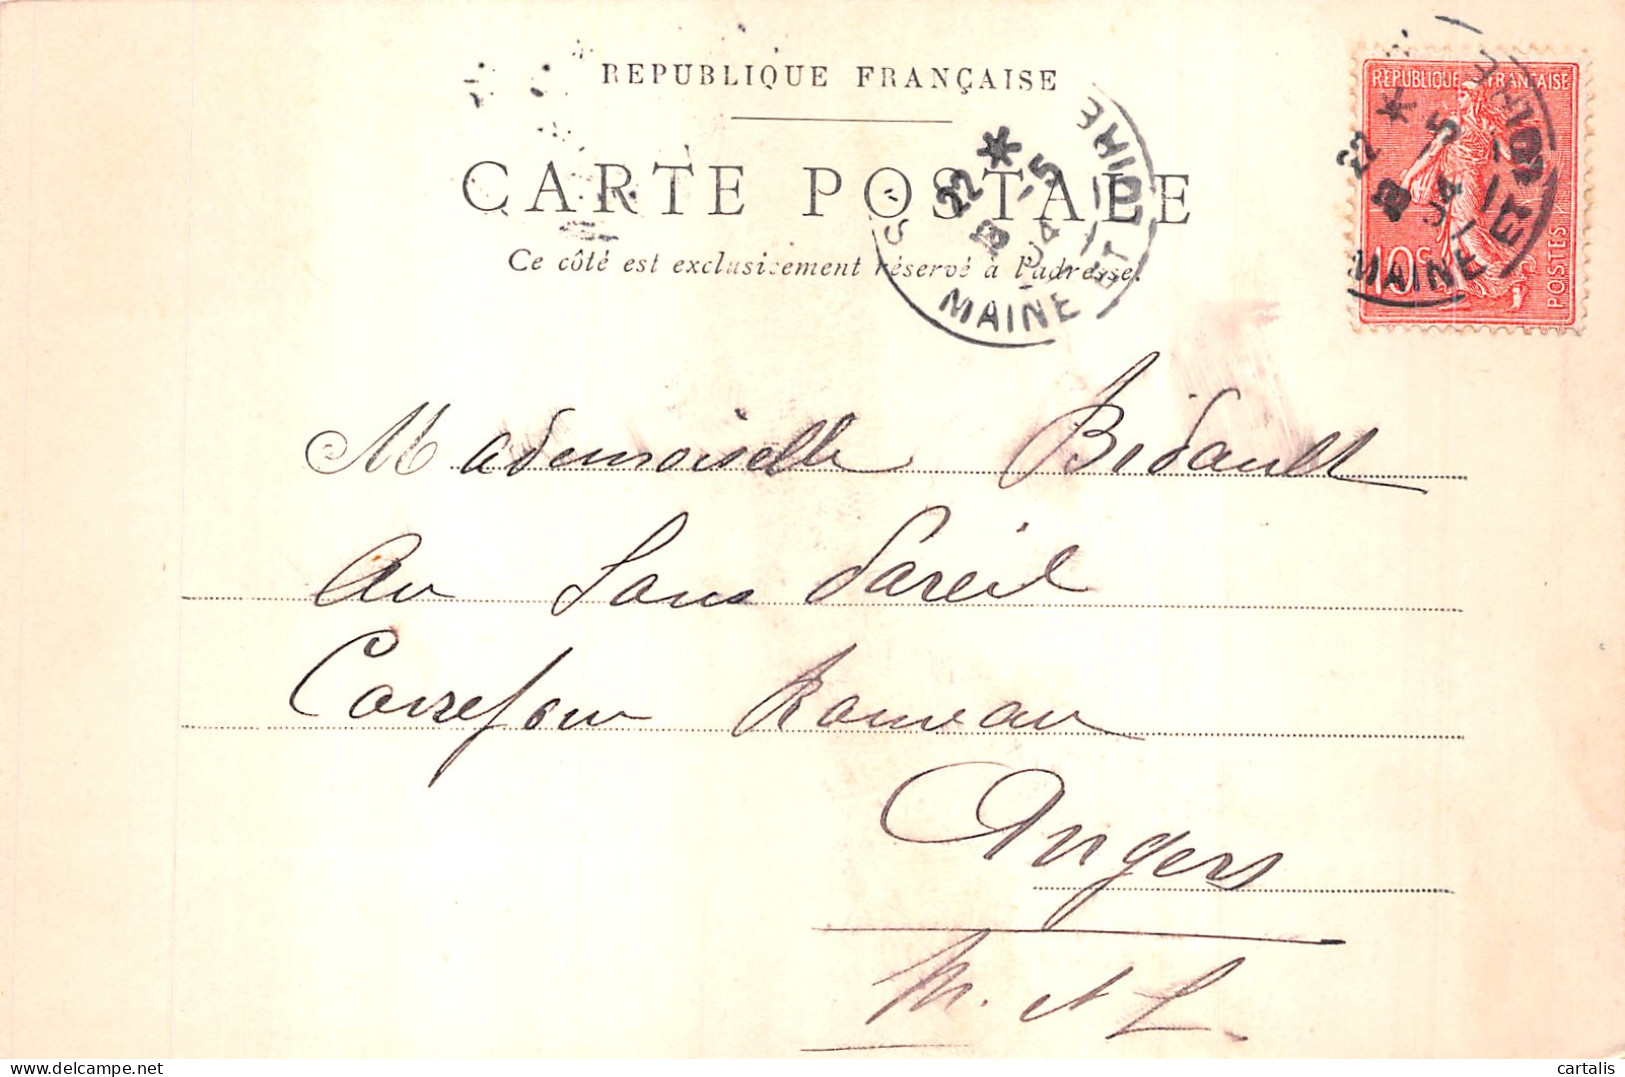 REPUBLIQUE FRANÇAISE
CARTE POSTALE
Ce côté est exclusivement réservé à l'adresse.
22 * -5
04
MAINE ET LOIRE
REPUBLIQUE FRANÇAISE
10c
POSTES
22 * -5
04
MAINE ET LOIRE
Mademoiselle Bidault
Au Sans Pareil
Carrefour Rameau
Angers
M. et L.
cartalis